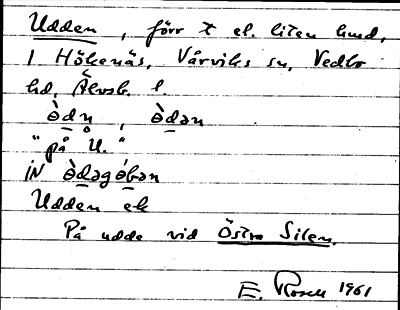 Udden, förr t el. liten lund,
i Hökenäs, Vårviks sn, Vedbo
hd, Älvsb. l.
ò̱dn, ò̱dən
"på U."
IN ò̱dəgɵ́bən
Udden ek
På udde vid Östra Silen.
E. Rosell 1961